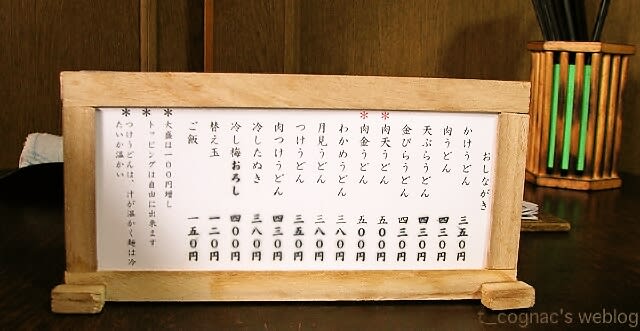 おしながき
かけうどん 三五0円
肉うどん 四三0円
天ぷらうどん 四三0円
金ぴらうどん 四三0円
*肉天うどん 五00円
*肉金うどん 五00円
わかめうどん 三八0円
月見うどん 三八0円
つけうどん 三五0円
肉つけうどん 四三0円
冷したぬき 三八0円
冷し梅おろし 四00円
替え玉 一二0円
ご飯 一五0円
*大盛は一00円増し
*トッピングは自由に出来ます
*つけうどんは、汁が温かく麺は冷
たいか温かい
t_cognac's weblog